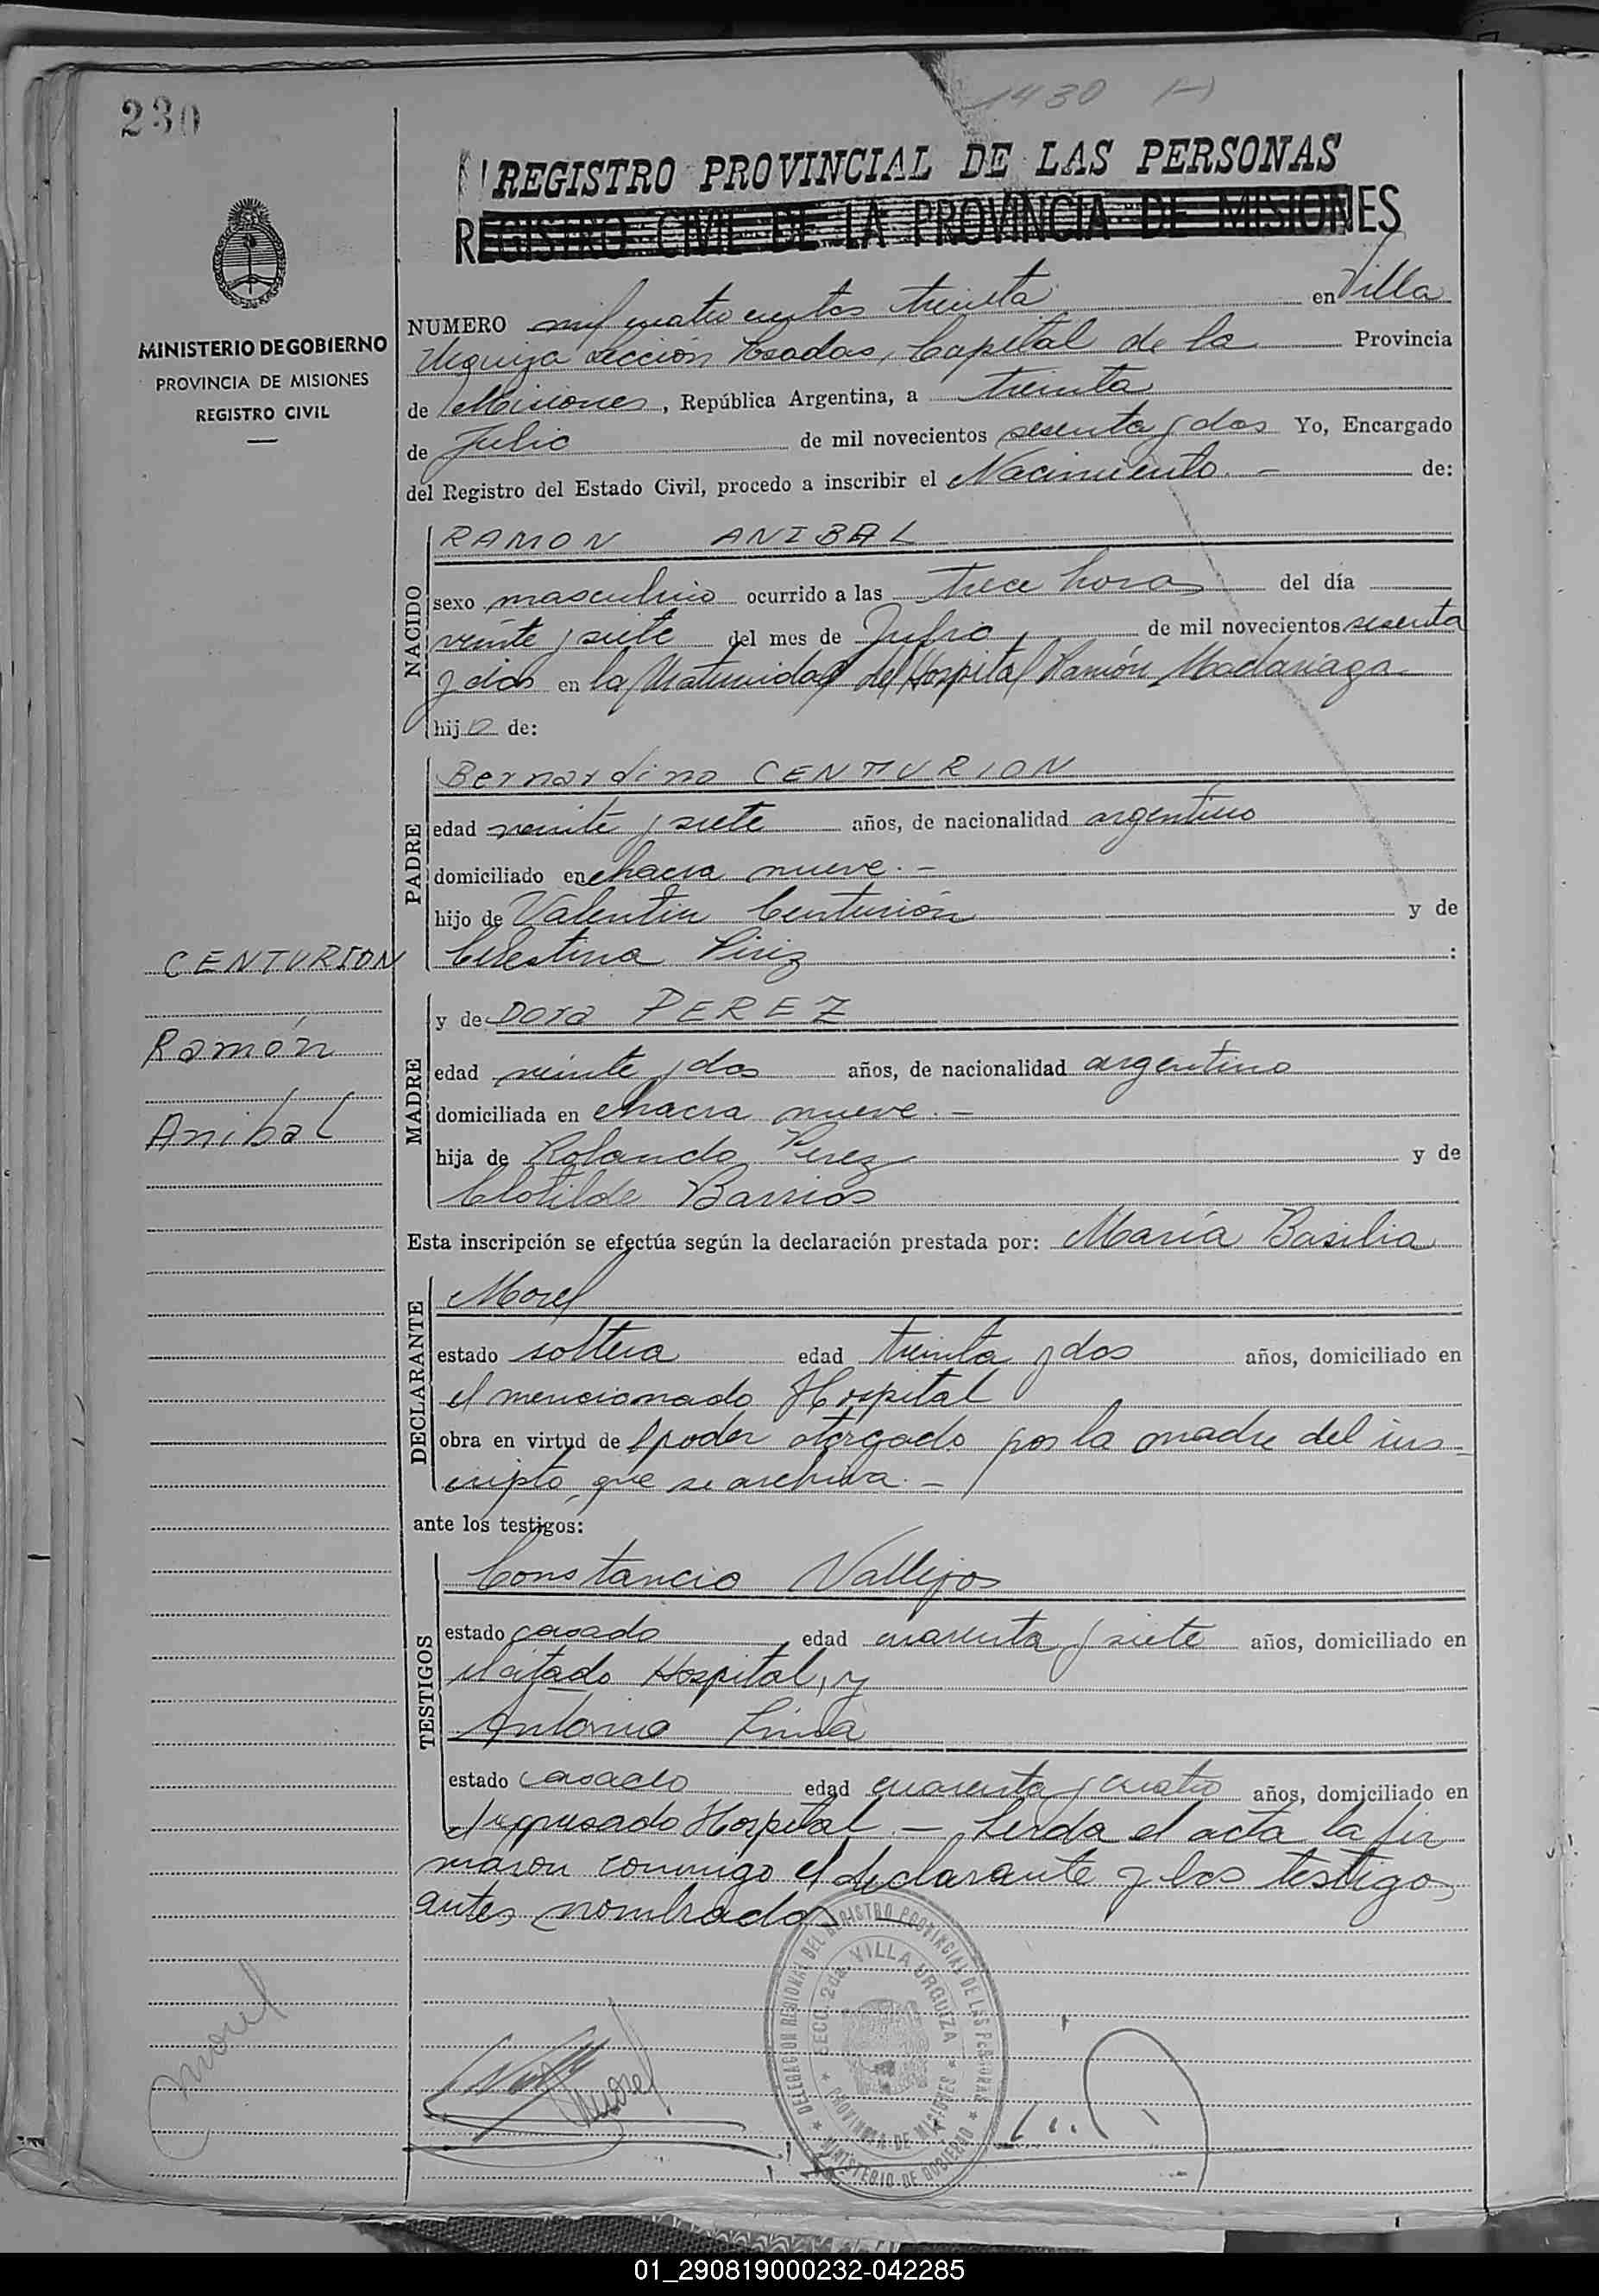 230
1430 (-)
REGISTRO PROVINCIAL DE LAS PERSONAS
REGISTRO CIVIL DE LA PROVINCIA DE MISIONES
MINISTERIO DE GOBIERNO
PROVINCIA DE MISIONES
REGISTRO CIVIL
NUMERO mil cuatrocientos treinta en Villa
Urquiza Sección Posadas, Capital de la Provincia
de Misiones, República Argentina, a treinta
de Julio de mil novecientos sesenta y dos Yo, Encargado
del Registro del Estado Civil, procedo a inscribir el Nacimiento.- de:
NACIDO
RAMON ANIBAL
sexo masculino ocurrido a las trece horas del día
veinte y siete del mes de Julio de mil novecientos sesenta
y dos en la Maternidad del Hospital Ramón Madariaga
hijo de:
PADRE
Bernardino CENTURION
edad veinte y siete años, de nacionalidad argentino
domiciliado en chacra nueve.-
hijo de Valentin Centurión y de
Celestina Piriz :
CENTURION
Ramón
Anibal
MADRE
y de Dora PEREZ
edad veinte y dos años, de nacionalidad argentino
domiciliada en chacra nueve.-
hija de Rolando Perez y de
Clotilde Barrios
Esta inscripción se efectúa según la declaración prestada por: María Basilia
DECLARANTE
Morel
estado soltera edad treinta y dos años, domiciliado en
el mencionado Hospital
obra en virtud de poder otorgado por la madre del ins-
cripto, que se archiva.-
ante los testigos:
TESTIGOS
Constancio Vallejos
estado casado edad cuarenta y siete años, domiciliado en
el citado Hospital, y
Antonio Lima
estado casado edad cuarenta y cuatro años, domiciliado en
el expresado Hospital.- Leída el acta la fir
maron conmigo el declarante y los testigos
antes nombrados.-
DELEGACION REGIONAL DEL REGISTRO PROVINCIAL DE LAS PERSONAS
SECC. 2da. VILLA URQUIZA
PROVINCIA DE MISIONES
MINISTERIO DE GOBIERNO
Morel
Morel
01_290819000232-042285